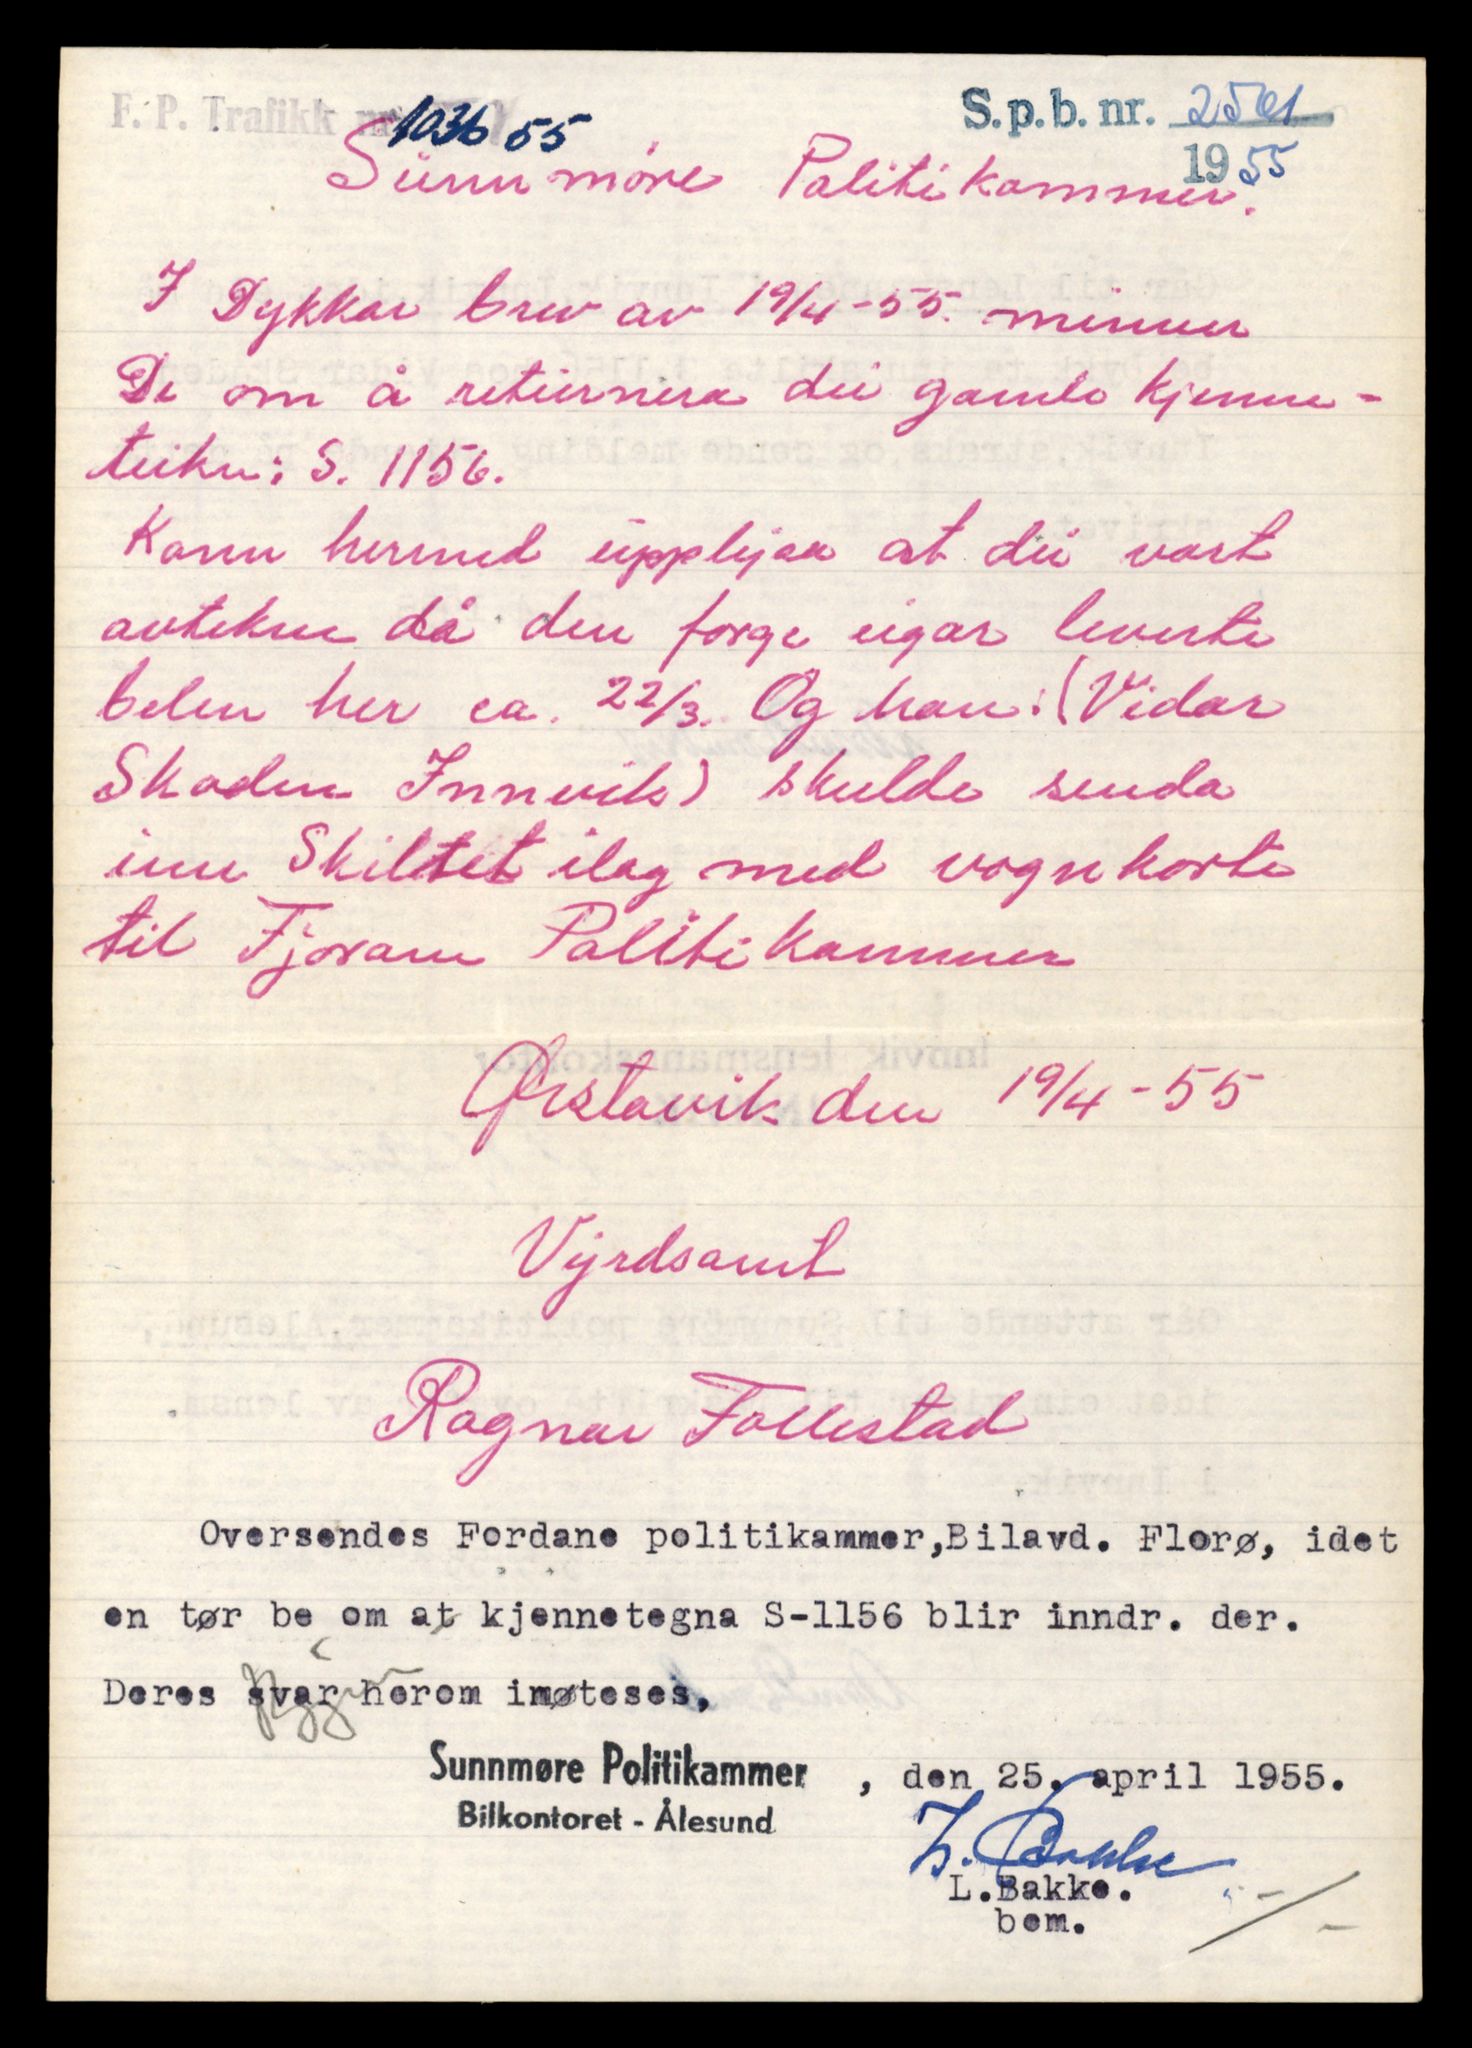 F. P. Trafikk nr. 1036 55
S.p.b. nr. 2561
1955
Sunnmöre Politikammer.
I Dykkar brev av 19/4-55. minner
De om å returnera dei gamle kjenne-
teikn: S. 1156.
Kann hermed upplysa at dei vart
avtekne då den forge eigar leverte
belen her ca. 22/3. Og han: (Vidar
Skaden Innvik) skulde senda
inn Skiltet ilag med vognkorte
til Fjorane Politikammer
Ørstavik den 19/4-55
Vyrdsamt
Ragnar Follestad
Oversendes Fordane politikammer,Bilavd. Florø, idet
en tør be om at kjennetegna S-1156 blir inndr. der.
Deres svar herom imøteses.
Sunnmøre Politikammer , den 25. april 1955.
Bilkontoret - Ålesund
L. Bakke
L.Bakke.
bem.